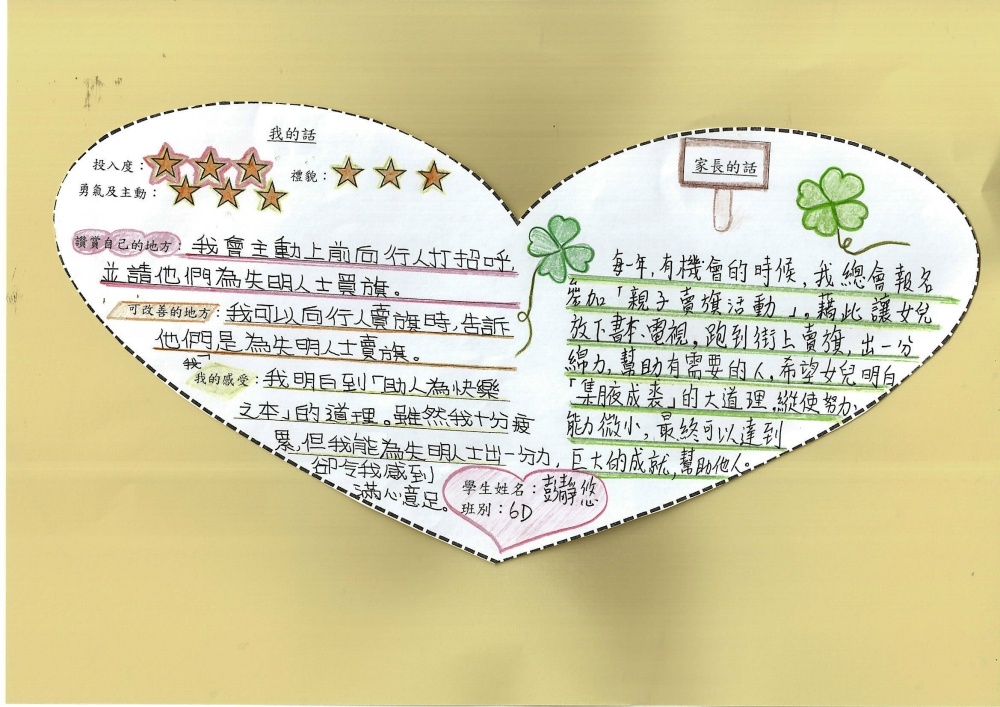 我的話
投入度：
禮貌：
勇氣及主動：
讚賞自己的地方：我會主動上前向行人打招呼，
並請他們為失明人士買旗。
可改善的地方：我可以向行人賣旗時，告訴
他們是為失明人士賣旗。
我
我的感受：我明白到「助人為快樂
之本」的道理。雖然我十分疲
累，但我能為失明人士出一分力，
卻令我感到
滿心意足。
家長的話
每年，有機會的時候，我總會報名
參加「親子賣旗活動」。藉此讓女兒
放下書本、電視，跑到街上賣旗，出一分
綿力，幫助有需要的人，希望女兒明白
「集腋成裘」的大道理，縱使努力、
能力微小，最終可以達到
巨大的成就，幫助他人。
學生姓名：彭靜悠
班別：6D